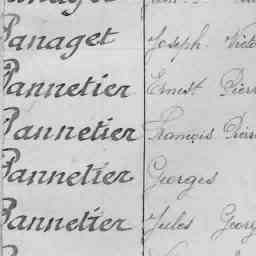 Panaget Joseph Victo
Pannetier Ernest Pierr
Pannetier François Pierr
Pannetier Georges
Pannetier Jules Georg